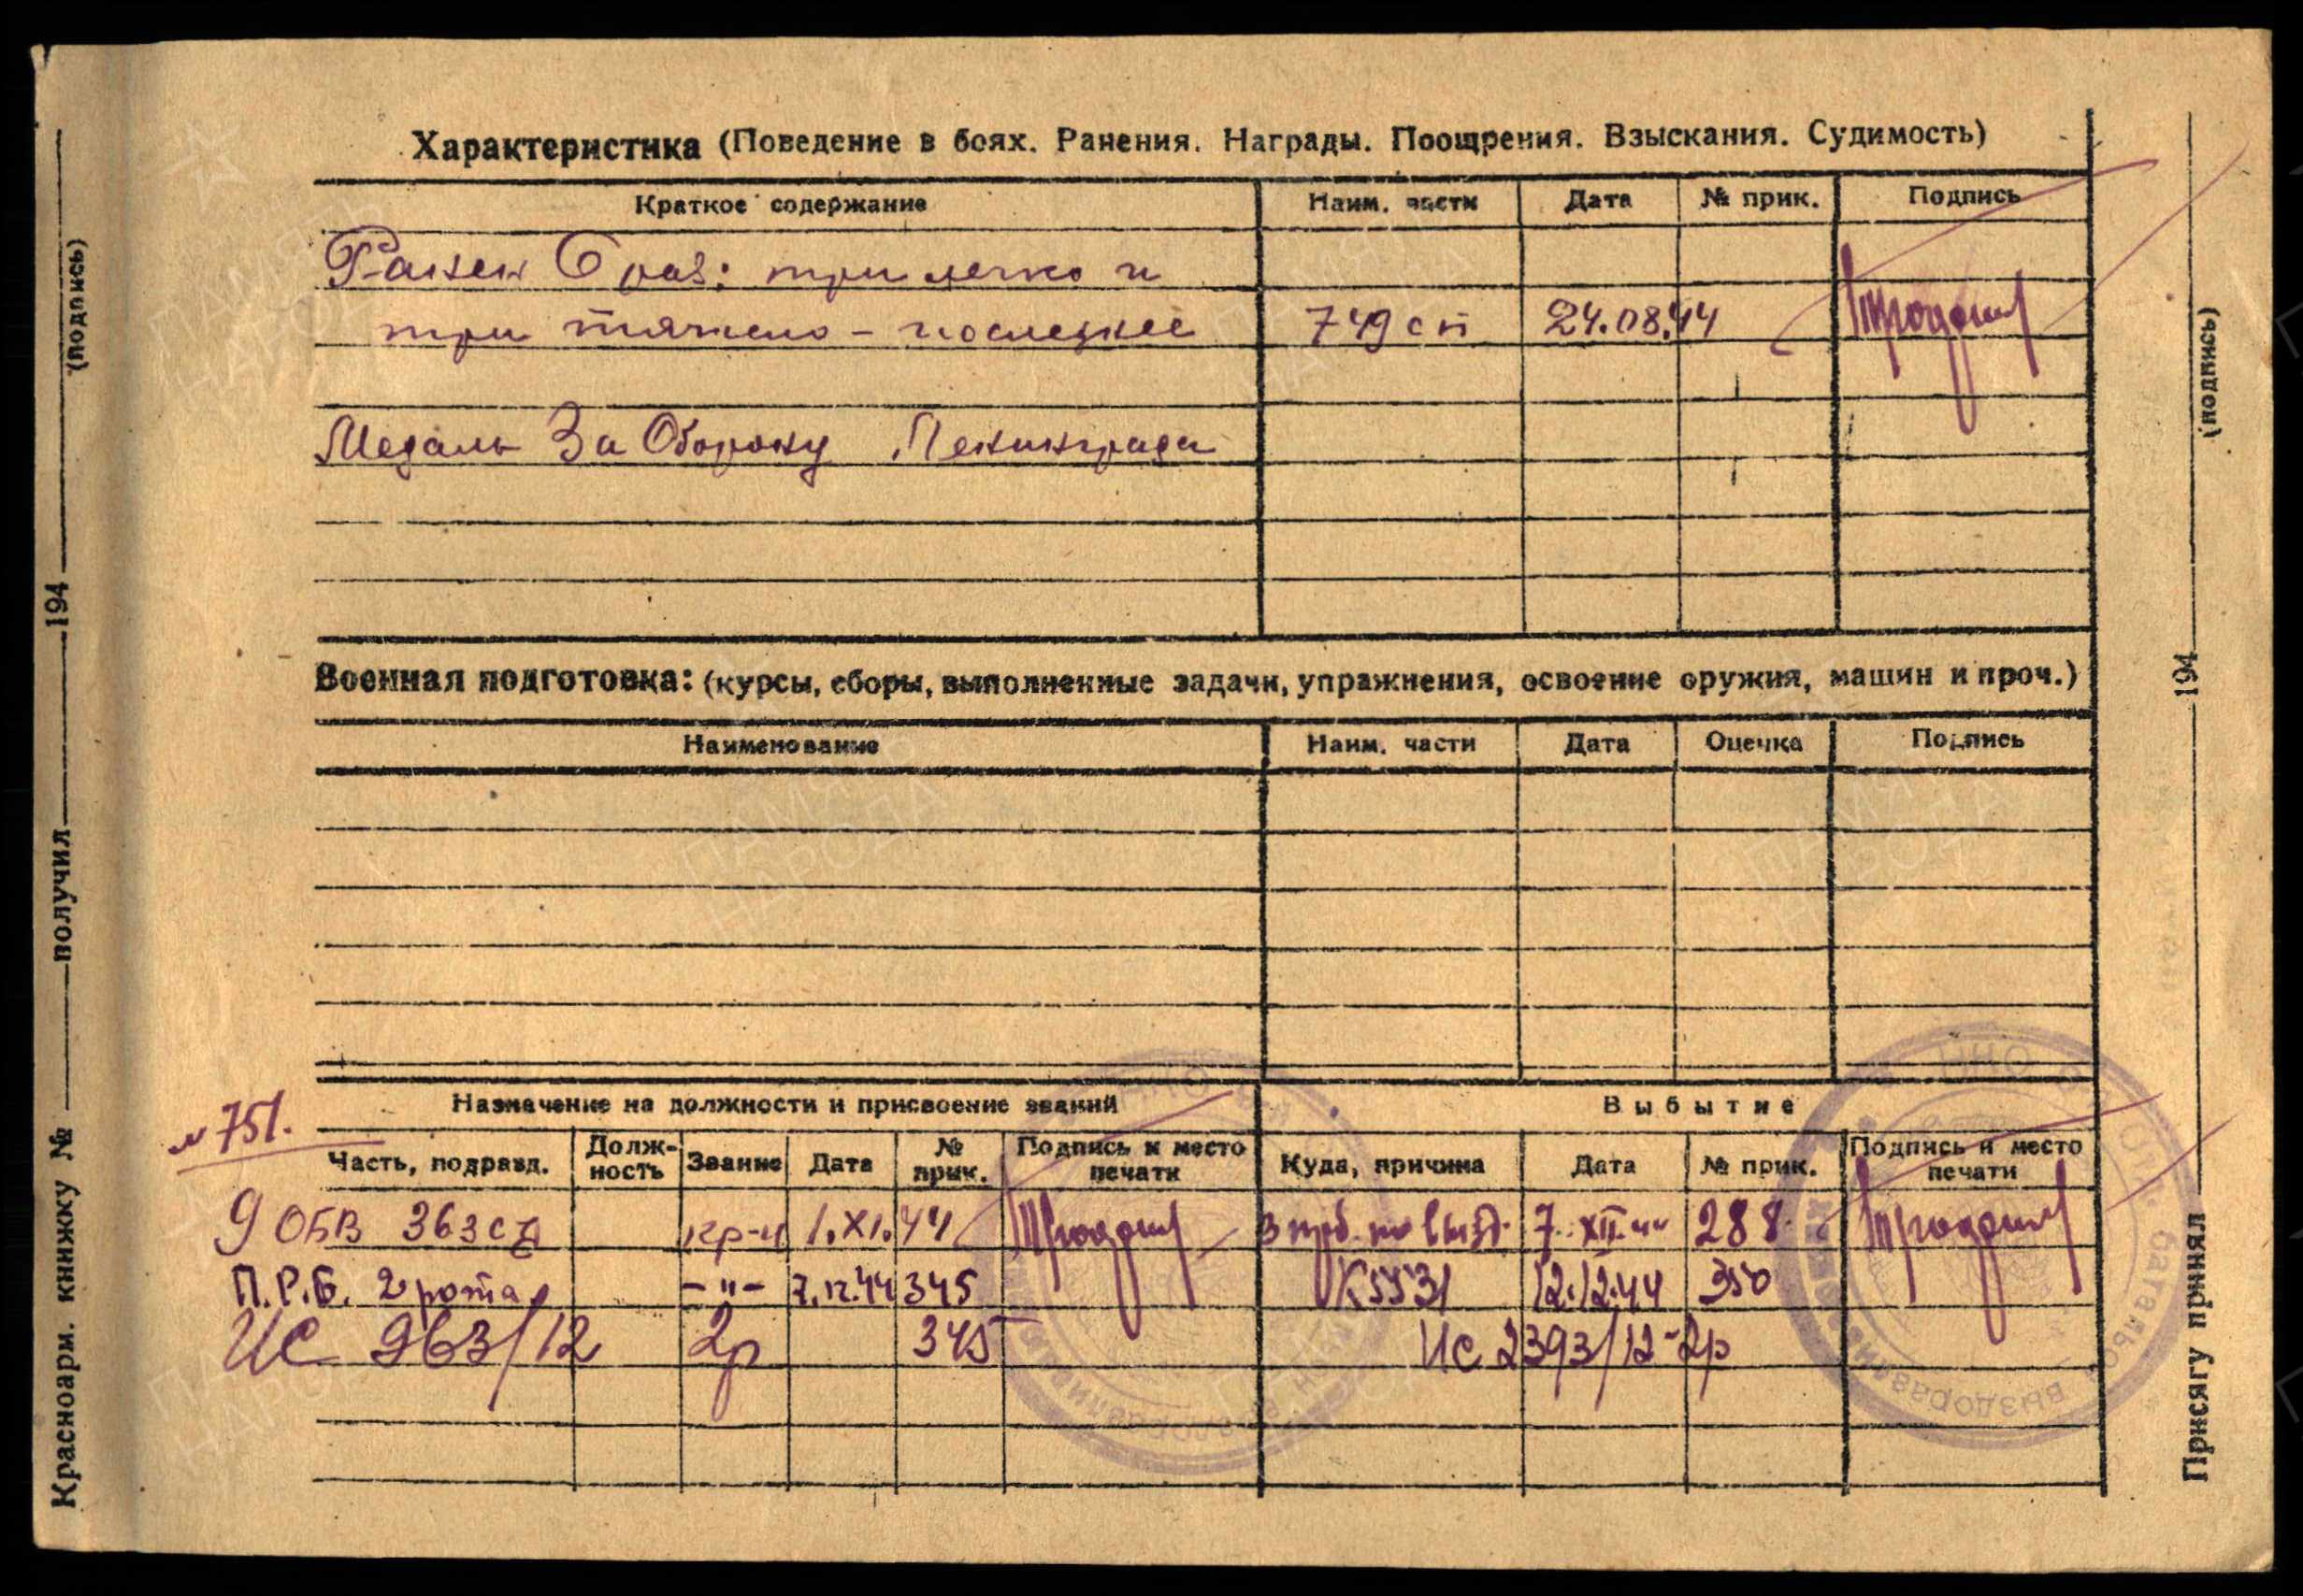 Характеристика (Поведение в боях. Ранения. Награды. Поощрения. Взыскания. Судимость)
Краткое содержание Наим. части Дата № прик. Подпись
Ранен 6 раз: три легко и
три тяжело – последнее 749 сп 24.08.44
Медаль За Оборону Ленинграда
Военная подготовка: (курсы, сборы, выполненные задачи, упражнения, освоение оружия, машин и проч.)
Наименование Наим. части Дата Оценка Подпись
№ 751.
Назначение на должности и присвоение званий Выбытие
Часть, подразд. Долж-ность Звание Дата № прик. Подпись и место печати Куда, причина Дата № прик. Подпись и место печати
9 ОБВ 363 сд кр-ц 1.XI.44 7.XII.44 288
П.Р.Б. 2 рота -"- 7.12.44 345 К5531 12.12.44 350
ИС 963/12 2р 345 ИС 2393/12-2р
Красноарм. книжку № получил 194 (подпись)
Присягу принял 194 (подпись)
ПАМЯТЬ НАРОДА